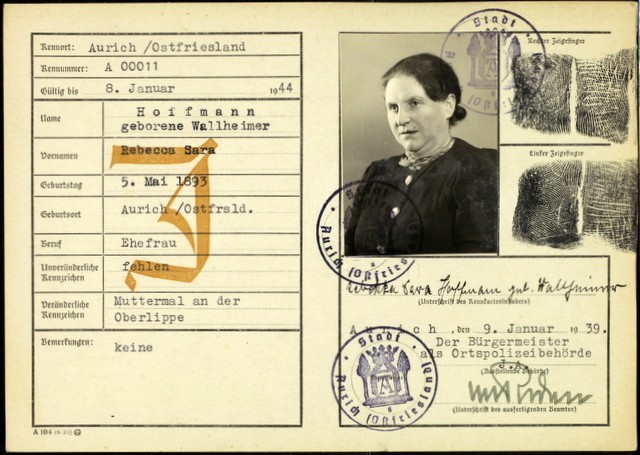 Kennort: Aurich /Ostfriesland
Kennummer: A 00011
Gültig bis 8. Januar 1944
Name Hoffmann
geborene Wallheimer
Vornamen Rebecca Sara
Geburtstag 5. Mai 1893
Geburtsort Aurich /Ostfrsld.
Beruf Ehefrau
Unveränderliche Kennzeichen fehlen
Veränderliche Kennzeichen Muttermal an der
Oberlippe
Bemerkungen: keine
J
A 104
Stadt
Rechter Zeigefinger
Linker Zeigefinger
Stadt
Aurich (Ostfries
Rebekka Sara Hoffmann geb. Wallheimer
(Unterschrift des Kennkarteninhabers)
Aurich, den 9. Januar 1939.
Der Bürgermeister
als Ortspolizeibehörde
(Ausstellende Behörde)
J.A.
(Unterschrift des ausfertigenden Beamten)
Stadt
Aurich (Ostfriesland)